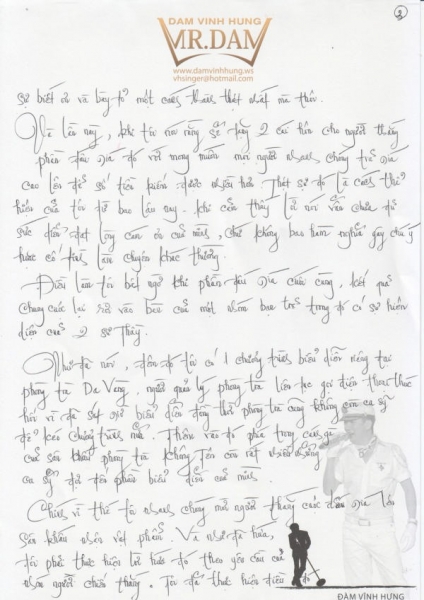 2
ĐAM VINH HUNG
MR.DAM
www.damvinhhung.ws
vhsinger@hotmail.com
sự biết ơn và bày tỏ một cách thành thật nhất mà thôi.
Và lần này, khi tôi nói rằng sẽ tặng 2 cái hôn cho người thắng
phần đấu giá đó với mong muốn mọi người nhanh chóng trả giá
cao lên để số tiền kiếm được nhiều hơn. Thật sự đó là cách thể
hiện của tôi từ bao lâu nay. Khi cảm thấy lời nói vẫn chưa đủ
sức diễn đạt lòng cảm ơn của mình, chứ không bao hàm nghĩa gây chú ý
hoặc cố tình làm chuyện khác thường.
Điều làm tôi bất ngờ khi phần đấu giá cuối cùng, kết quả
chung cuộc lại rơi vào bàn của một nhóm bạn trẻ trong đó có sự hiện
diện của 2 sư Thầy.
Như đã nói, đêm đó tôi có 1 chương trình biểu diễn riêng tại
phòng trà Da Vàng. người quản lý phòng trà liên tục gọi điện thoại thúc
hối vì đã sát giờ biểu diễn đồng thời phòng trà cũng không còn ca sỹ
để kéo chương trình nữa. Thêm vào đó phía trong
của sân khấu phòng trà Không Tên còn rất nhiều
ca sỹ đợi đến phần biểu diễn của mình.
Chính vì thế tôi nhanh chóng mời người thắng cuộc đấu giá lên
sân khấu nhận vật phẩm. Và như đã hứa,
tôi phải thực hiện lời hứa đó theo yêu cầu của
nhóm người chiến thắng. Tôi đã thực hiện điều đó
ĐÀM VĨNH HƯNG